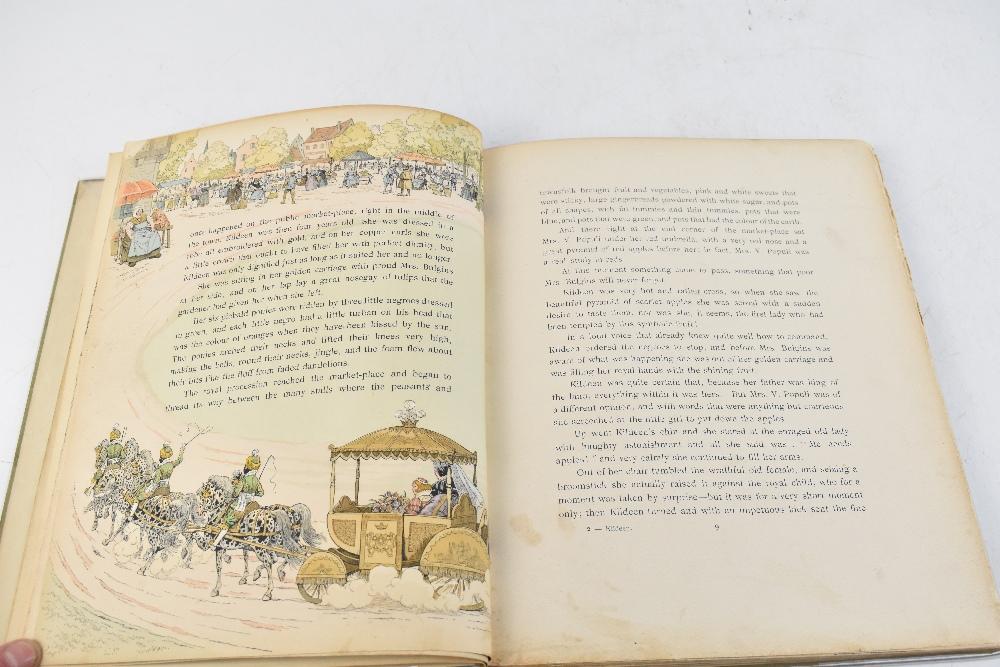 once happened on the public market-place, right in the middle of
the town. Kildeen was then four years old. She was dressed in a
robe all embroidered with gold, and on her copper curls she wore
a little crown that ought to have filled her with perfect dignity, but
Kildeen was only dignified just as long as it suited her and no longer.
She was sitting in her golden carriage with proud Mrs. Bulgins
at her side, and on her lap lay a great nosegay of tulips that the
gardener had given her when she left.
Her six piebald ponies were ridden by three little negroes dressed
in green, and each little negro had a little turban on his head that
was the colour of oranges when they have been kissed by the sun.
The ponies arched their necks and lifted their knees very high,
making the bells, round their necks, jingle, and the foam flew about
their bits like the fluff from faded dandelions.
The royal procession reached the market-place and began to
thread its way between the many stalls where the peasants and
townsfolk brought fruit and vegetables, pink and white sweets that
were sticky, large gingerbreads powdered with white sugar, and pots
of all shapes, with fat tummies and thin tummies, pots that were
blue, and pots that were green, and pots that had the colour of the earth.
And there right at the end corner of the market-place sat
Mrs. V. Populi under her red umbrella, with a very red nose and a
great pyramid of red apples before her; in fact, Mrs. V. Populi was
a real study in reds.
At this moment something came to pass, something that poor
Mrs. Bulgins will never forget.
Kildeen was very hot and rather cross, so when she saw the
beautiful pyramid of scarlet apples she was seized with a sudden
desire to taste them, nor was she, it seems, the first lady who had
been tempted by this symbolic fruit!
In a loud voice that already knew quite well how to command,
Kildeen ordered the negroes to stop, and before Mrs. Bulgins was
aware of what was happening she was out of her golden carriage and
was filling her royal hands with the shining fruit.
Kildeen was quite certain that, because her father was king of
the land, everything within it was hers. But Mrs. V. Populi was of
a different opinion, and with words that were anything but courteous
she screeched at the little girl to put down the apples.
Up went Kildeen's chin and she stared at the enraged old lady
with haughty astonishment and all she said was: "Me needs
apples!" and very calmly she continued to fill her arms.
Out of her chair tumbled the wrathful old female, and seizing a
broomstick she actually raised it against the royal child, who for a
moment was taken by surprise—but it was for a very short moment
only; then Kildeen turned and with an impetuous kick sent the fine
2 — Kildeen. 9